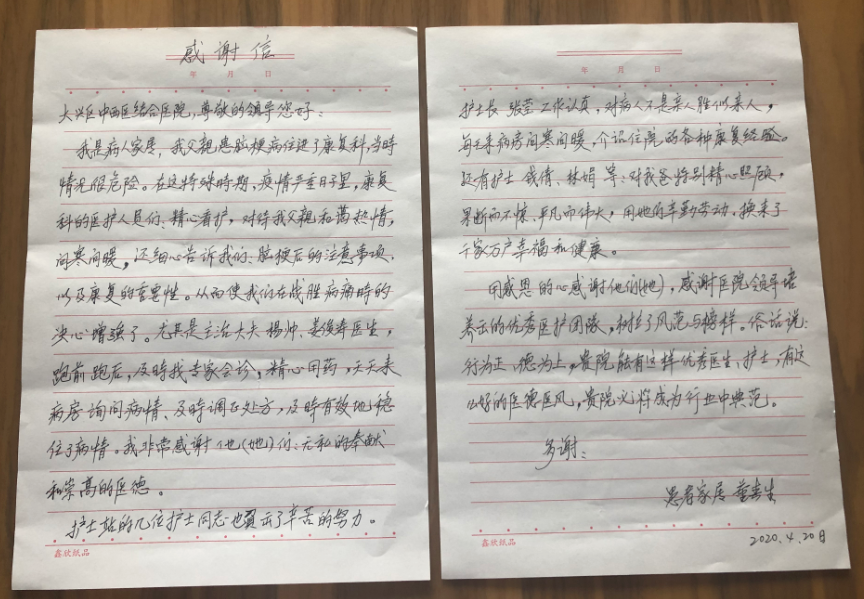 感谢信
年 月 日
大兴区中西医结合医院,尊敬的领导您好:
我是病人家属,我父親患脑梗病住进了康复科,当時
情况很危险。在这特殊時期,疫情严重日子里,康复
科的医护人员们、精心看护,对待我父親和蔼热情,
问寒问暖,还细心告诉我们:脑梗后的注意事项,
以及康复的重要性。从而使我们在战胜病痛時的
决心增强了。尤其是主治大夫 杨帅、姜俊寿医生,
跑前跑后,及時找专家会诊,精心用药,天天来
病房询问病情、及時调正处方,及時有效地稳
住了病情。我非常感谢他(她)们:无私的奉献
和崇高的医德。
护士站的几位护士同志也負出了辛苦的努力。
鑫欣纸品
年 月 日
护士长 張莹 工作认真,对病人不是亲人胜似亲人,
每天来病房问寒问暖,介认住院的各种康复经验。
还有护士 钱倩、林娟 等:对我爸特别精心照顾,
果断而不惊、平凡而伟大,用她们辛勤劳动,换来了
千家万户幸福和健康。
用感恩的心感谢他们(她),感谢医院领导培
养出的优秀医护团隊,树拉了风范与榜样。俗话说:
行为正、德为上,贵院能有这样优秀医生、护士,有这
么好的医德医风,贵院必将成为行业中典范。
多谢:
患者家居 董
2020.4.20日
鑫欣纸品